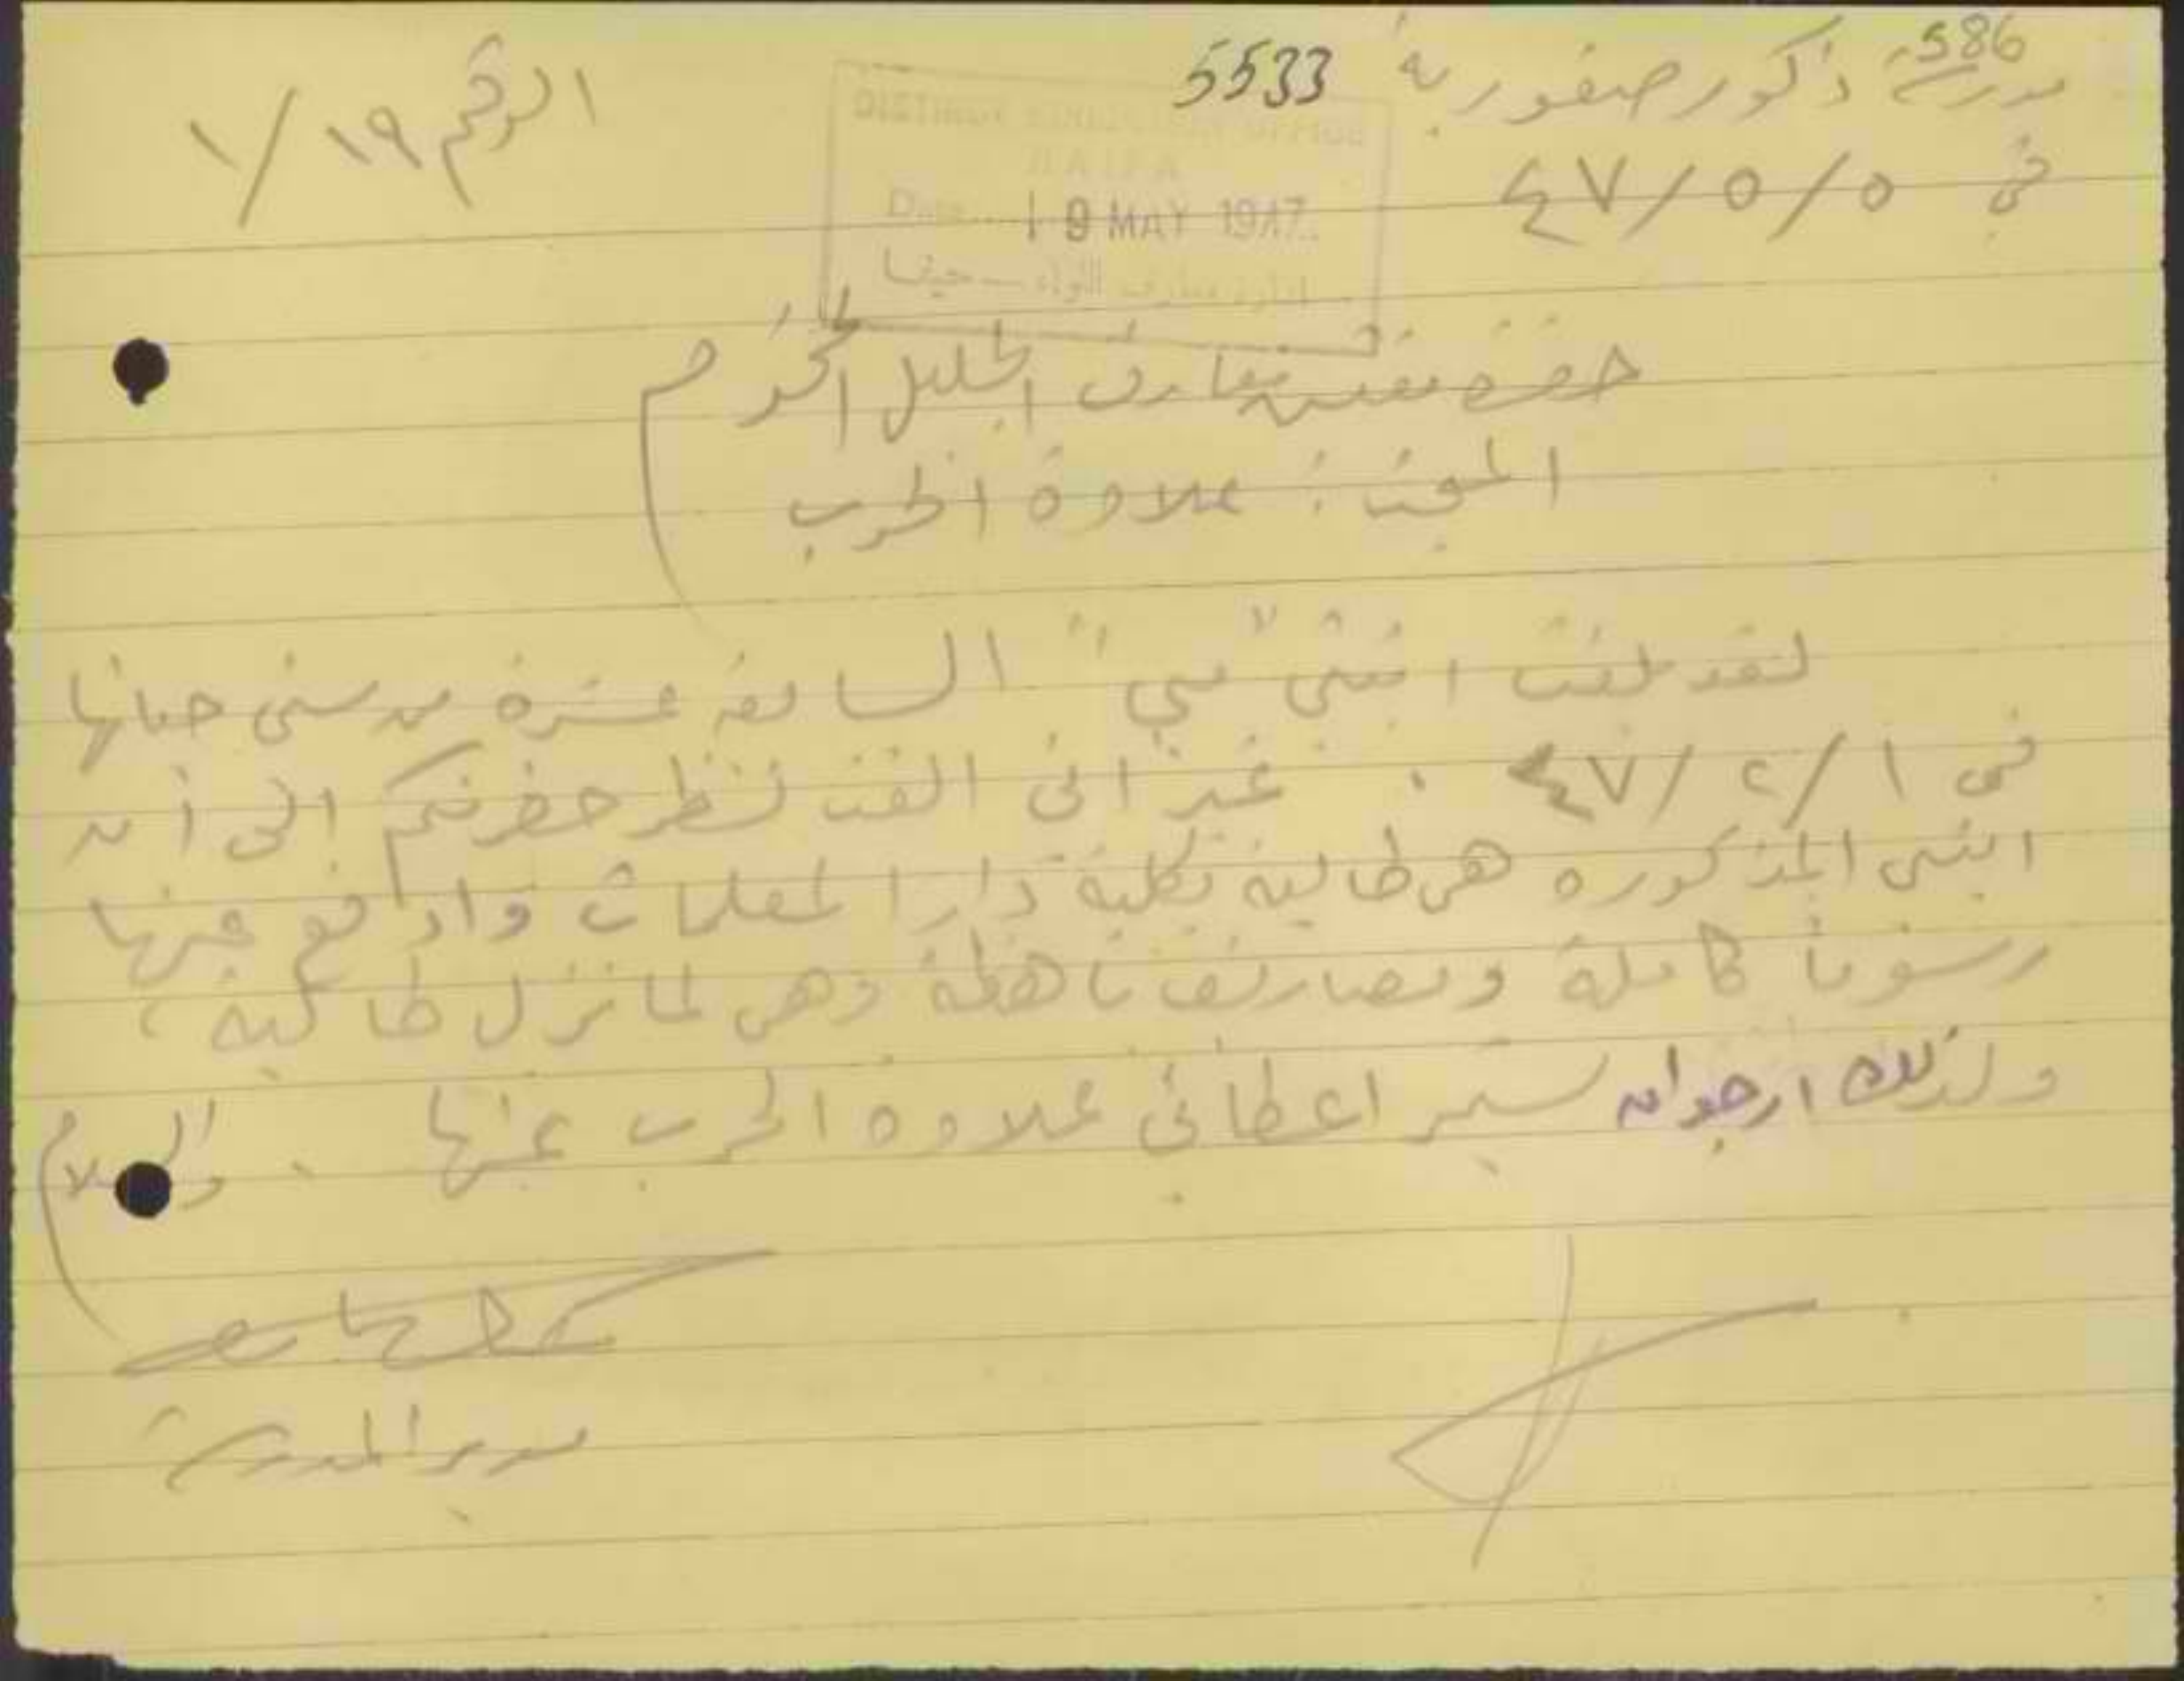 586
مدرسة ذكور صفورية
5533
الرقم ١٩/١
في ٤٧/٥/٥
DISTRICT EDUCATION OFFICE
HAIFA
Date 19 MAY 1947
ادارة معارف اللواء - حيفا
حضرة مفتش معارف الجليل المحترم
المبحث : علاوة الحرب
لقد بلغت ابنتي "مي" السابعة عشرة من سني حياتها
في ٤٧/٢/١ . غير اني الفت نظر حضرتكم الى أن
ابنتي المذكوره هي طالبة بكلية دار المعلمات وادفع عنها
رسوماً كاملة ومصاريف باهظة وهي لما تزل طالبة ،
ولذلك ارجو ان يستمر اعطائي علاوة الحرب عنها . والسلام
مدير المدرسة